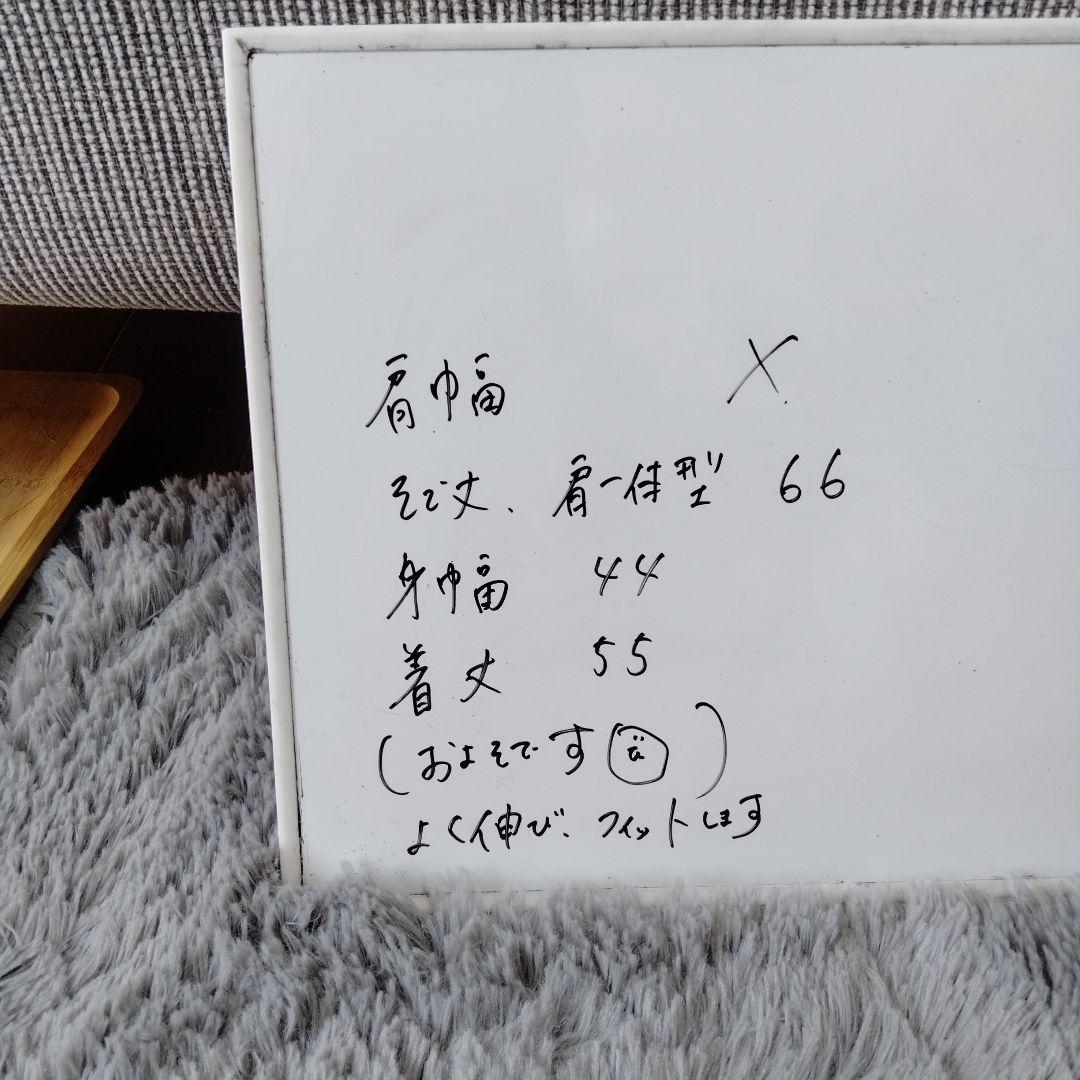 肩巾幅 ×
そで丈、肩一体型 66
身巾幅 44
着丈 55
(およそです)
よく伸び、フィットします